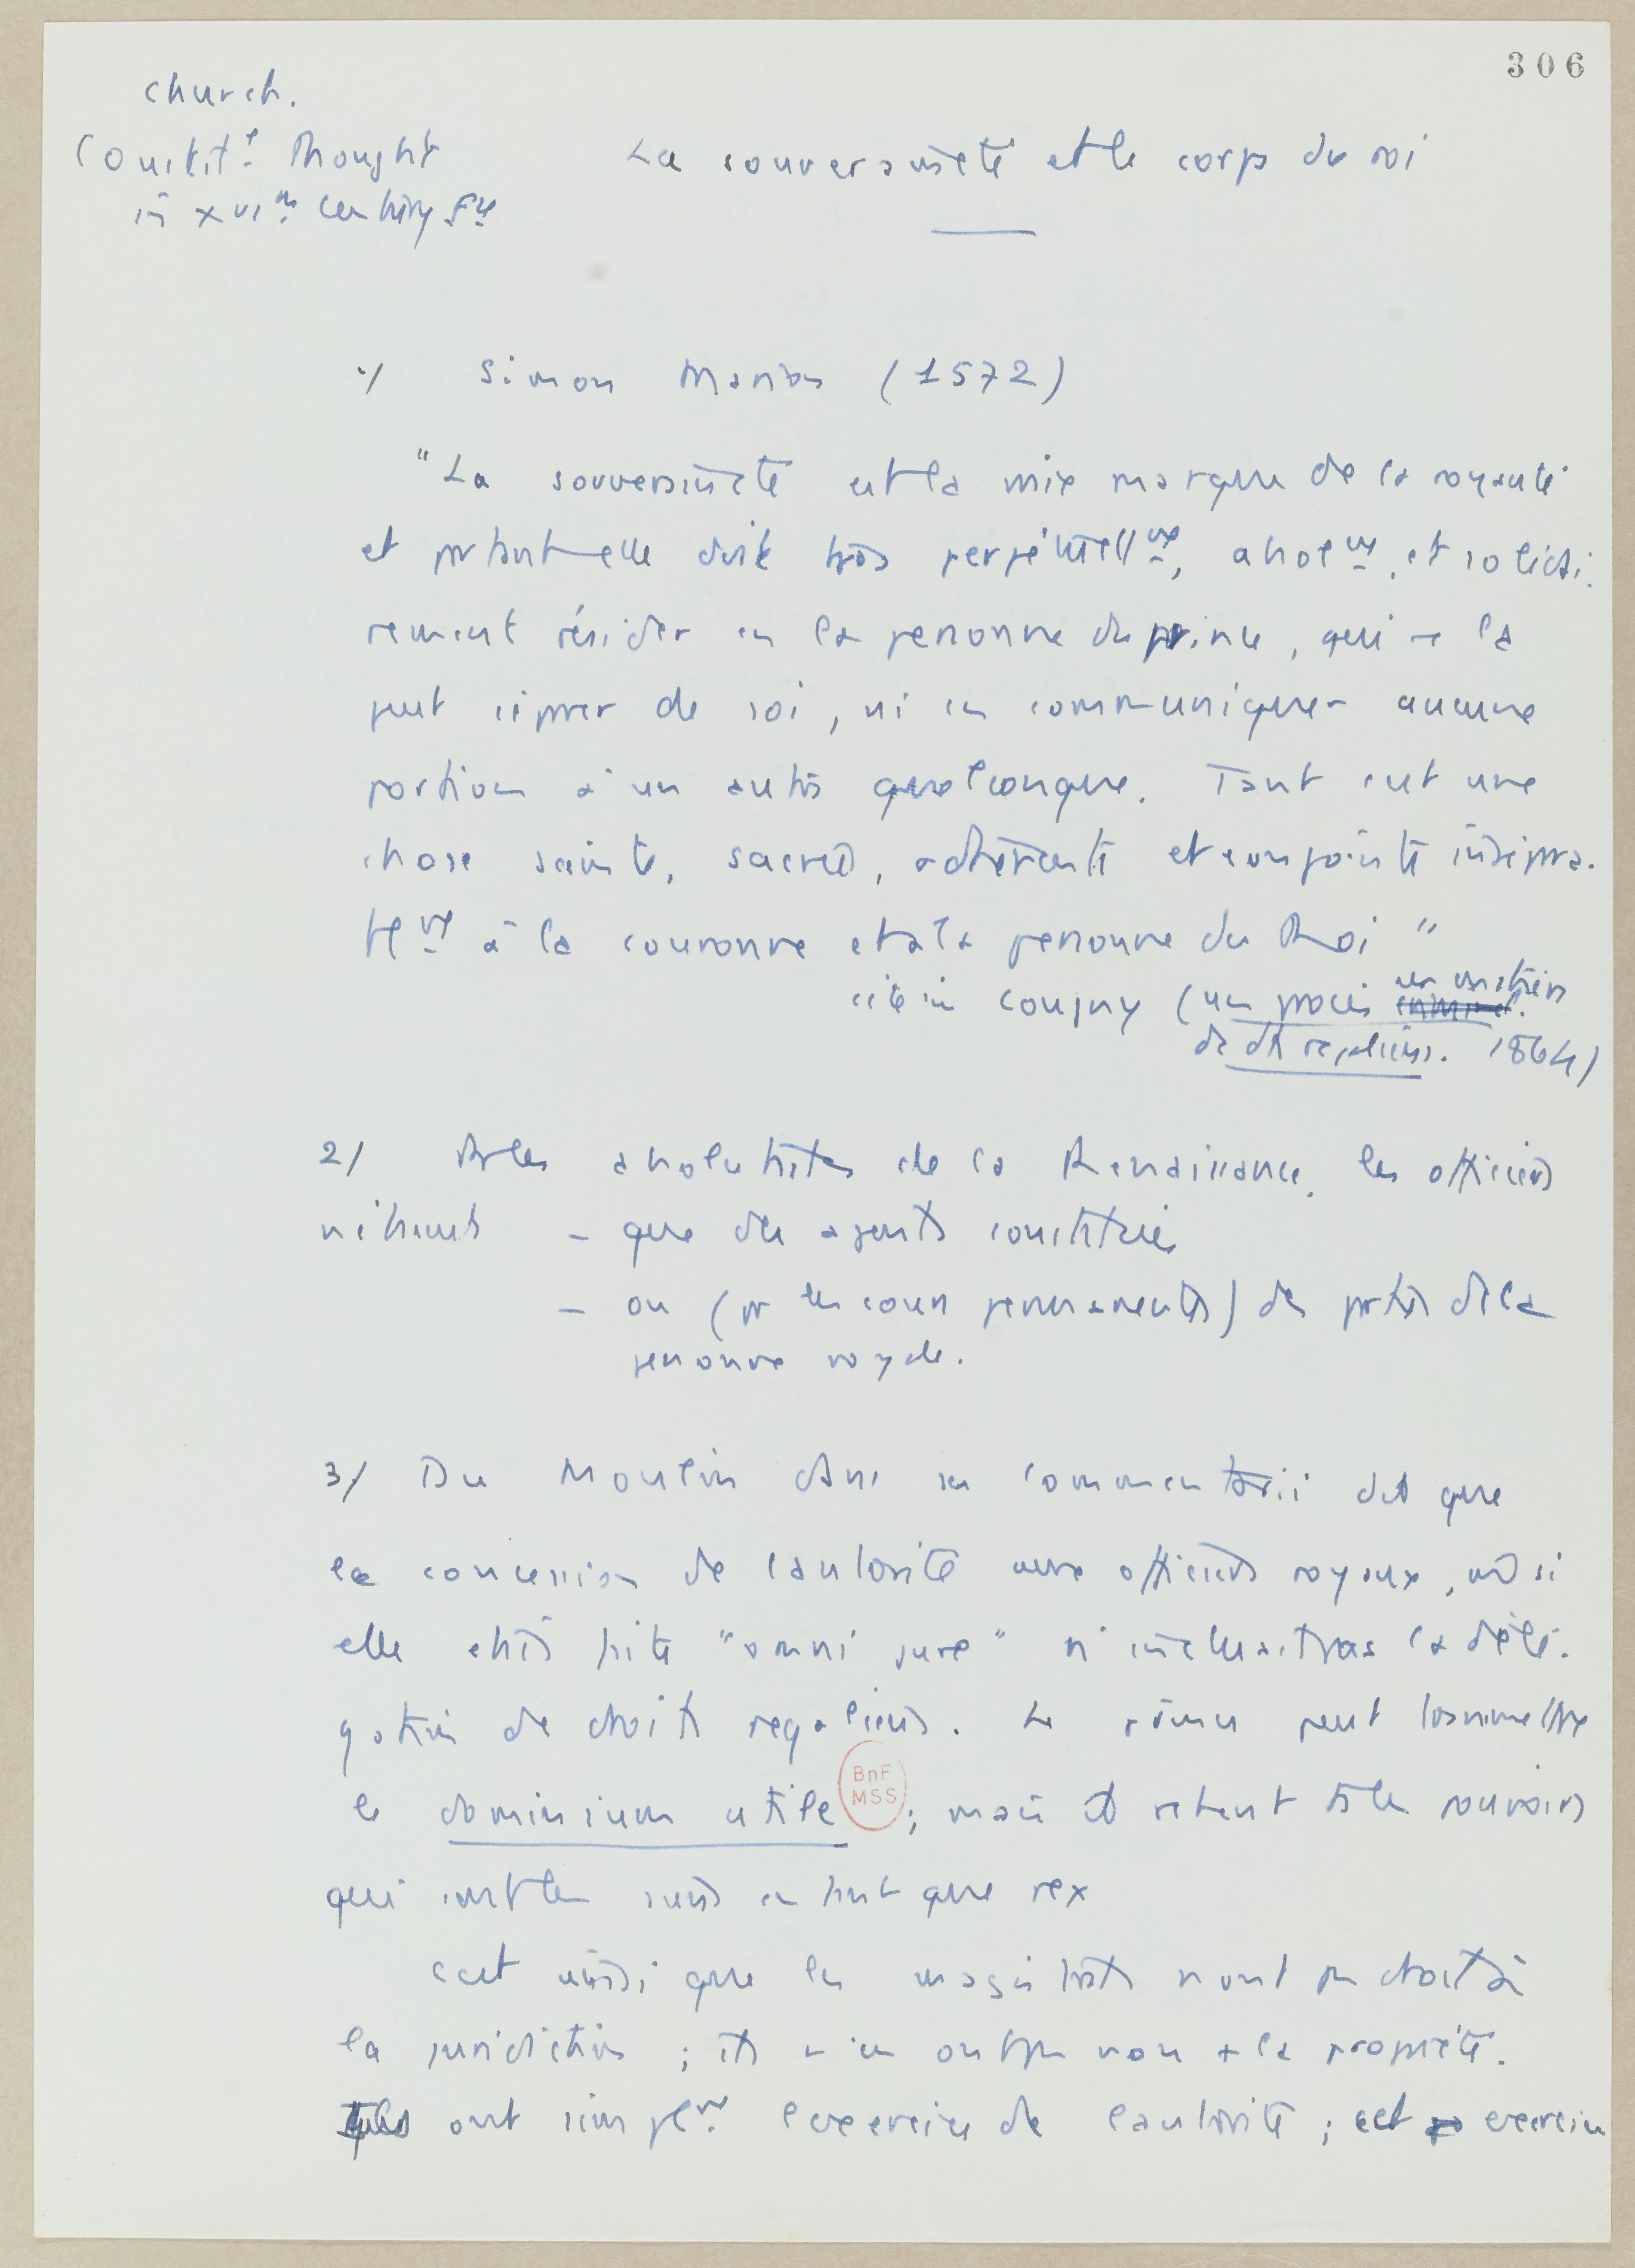 306
Church.
Constit.l Thought
in XVIth Century Fce
La souveraineté et le corps du roi
1/ Simon Marion (1572)
"La souveraineté est la vraie marque de la royauté
et partant elle doit très perpétuellmt, absolmt, et solidai-
rement résider en la personne du prince, qui ne la
peut séparer de soi, ni en communiquer aucune
portion à un autre quelconque. Tant c'est une
chose sainte, sacrée, adhérente et conjointe insépara-
blmt à la couronne et à la personne du Roi"
cité in Cougny (un procès en matière
de dts régaliens. 1864)
2/ Pr les absolutistes de la Renaissance, les officiers
n'étaient – que des agents constitués
– ou (pr les cours permanentes) des parties de la
personne royale.
3/ Du Moulin dans ses Commentarii dit que
la concession de l'autorité aux officiers royaux, même si
elle était faite "omni jure" n'incluait pas la délé-
gation de droits régaliens. Le prince peut transmettre
le dominium utile ; mais il retient ts les pouvoirs
qui sont les siens en tant que rex
c'est ainsi que les magistrats n'ont pas droit à
la juridiction ; ils n'en ont pas non + la propriété.
Ils ont simplmt l'exercice de l'autorité ; cet exercice
BnF
MSS